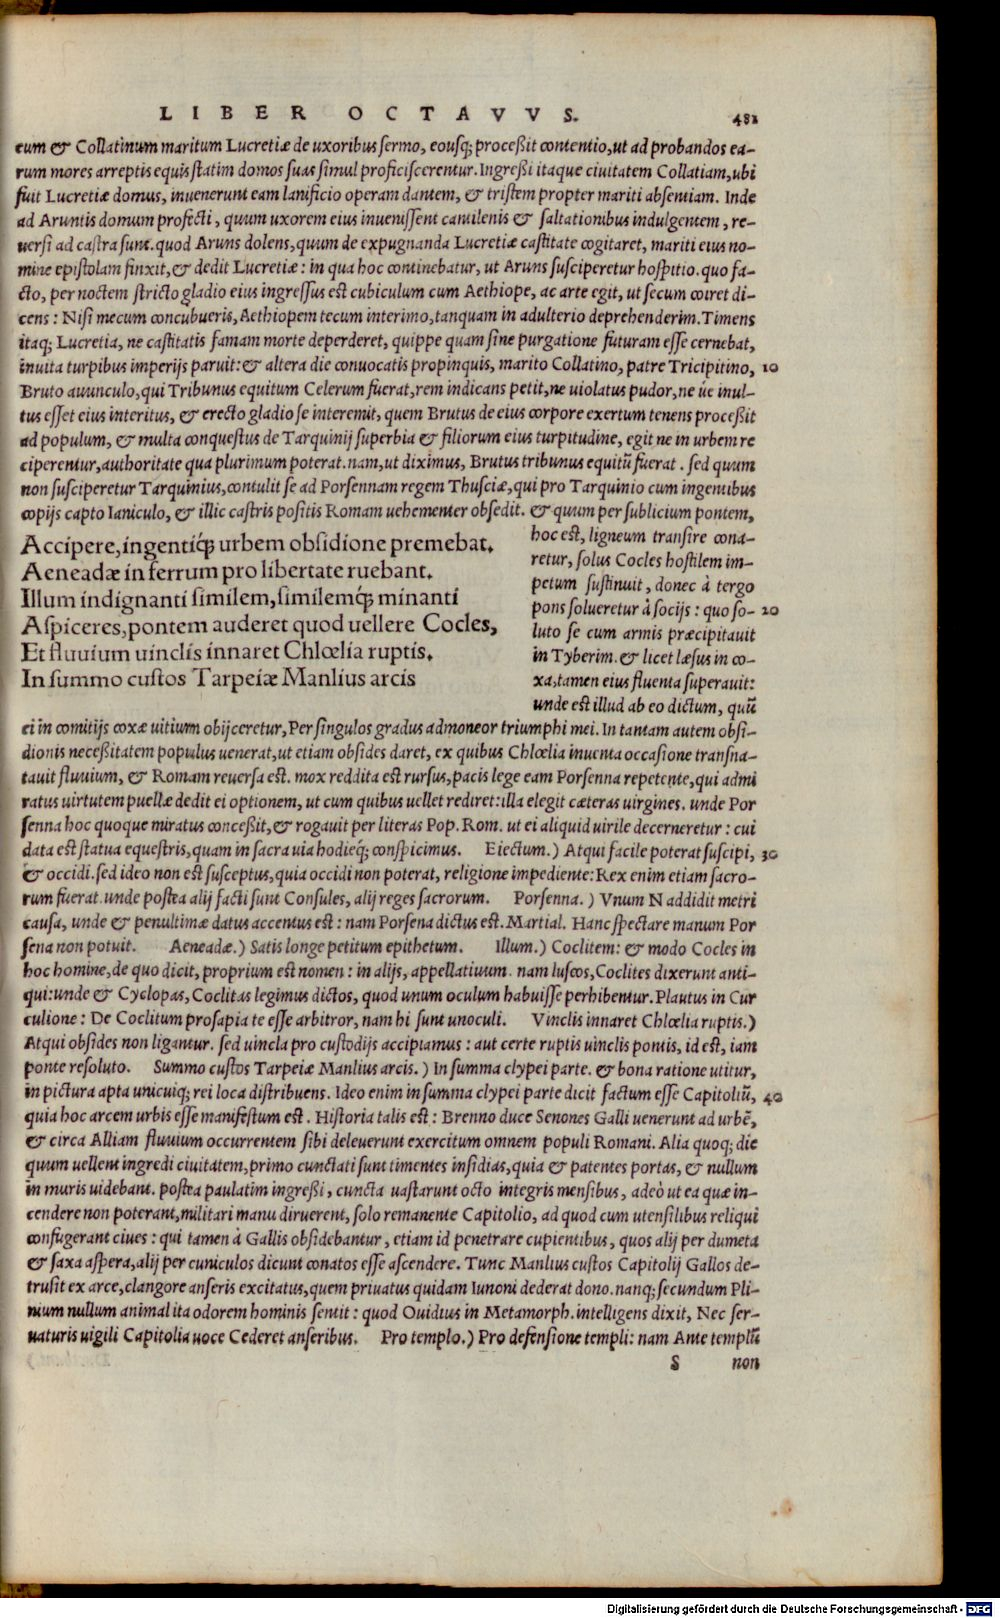 LIBER OCTAVVS. 481
eum & Collatinum maritum Lucretiæ de uxoribus sermo, eousq; proceßit contentio, ut ad probandos ea-
rum mores arreptis equis statim domos suas simul proficiscerentur. Ingreßi itaque ciuitatem Collatiam, ubi
fuit Lucretiæ domus, inuenerunt eam lanificio operam dantem, & tristem propter mariti absentiam. Inde
ad Aruntis domum profecti, quum uxorem eius inuenissent cantilenis & saltationibus indulgentem, re-
uersi ad castra sunt. quod Aruns dolens, quum de expugnanda Lucretiæ castitate cogitaret, mariti eius no-
mine epistolam finxit, & dedit Lucretiæ: in qua hoc continebatur, ut Aruns susciperetur hospitio. quo fa-
cto, per noctem stricto gladio eius ingressus est cubiculum cum Aethiope, ac arte egit, ut secum coiret di-
cens: Nisi mecum concubueris, Aethiopem tecum interimo, tanquam in adulterio deprehenderim. Timens
itaq; Lucretia, ne castitatis famam morte deperderet, quippe quam sine purgatione futuram esse cernebat,
inuita turpibus imperijs paruit: & altera die conuocatis propinquis, marito Collatino, patre Tricipitino, 10
Bruto auunculo, qui Tribunus equitum Celerum fuerat, rem indicans petit, ne uiolatus pudor, ne úe inul-
tus esset eius interitus, & erecto gladio se interemit, quem Brutus de eius corpore exertum tenens proceßit
ad populum, & multa conquestus de Tarquinij superbia & filiorum eius turpitudine, egit ne in urbem re
ciperentur, authoritate qua plurimum poterat. nam, ut diximus, Brutus tribunus equitū fuerat. sed quum
non susciperetur Tarquinius, contulit se ad Porsennam regem Thusciæ, qui pro Tarquinio cum ingentibus
copijs capto Ianiculo, & illic castris positis Romam uehementer obsedit. & quum per sublicium pontem,
Accipere, ingentíq; urbem obsidione premebat.
Aeneadæ in ferrum pro libertate ruebant.
Illum indignanti similem, similemq́; minanti
Aspiceres, pontem auderet quod uellere Cocles,
Et fluuium uinclis innaret Chlœlia ruptis.
In summo custos Tarpeiæ Manlius arcis
hoc est, ligneum transire cona-
retur, solus Cocles hostilem im-
petum sustinuit, donec à tergo
pons solueretur à socijs: quo so- 20
luto se cum armis præcipitauit
in Tyberim. & licet læsus in co-
xa, tamen eius fluenta superauit:
unde est illud ab eo dictum, quū
ei in comitijs coxæ uitium obijceretur, Per singulos gradus admoneor triumphi mei. In tantam autem obsi-
dionis neceßitatem populus uenerat, ut etiam obsides daret, ex quibus Chlœlia inuenta occasione transna-
tauit fluuium, & Romam reuersa est. mox reddita est rursus, pacis lege eam Porsenna repetente, qui admi
ratus uirtutem puellæ dedit ei optionem, ut cum quibus uellet rediret: illa elegit cæteras uirgines. unde Por
senna hoc quoque miratus conceßit, & rogauit per literas Pop. Rom. ut ei aliquid uirile decerneretur: cui
data est statua equestris, quam in sacra uia hodieq́; conspicimus. Eiectum.) Atqui facile poterat suscipi, 30
& occidi. sed ideo non est susceptus, quia occidi non poterat, religione impediente: Rex enim etiam sacro-
rum fuerat. unde postea alij facti sunt Consules, alij reges sacrorum. Porsenna.) Vnum N addidit metri
causa, unde & penultimæ datus accentus est: nam Porsena dictus est. Martial. Hanc spectare manum Por
sena non potuit. Aeneadæ.) Satis longe petitum epithetum. Illum.) Coclitem: & modo Cocles in
hoc homine, de quo dicit, proprium est nomen: in alijs, appellatiuum. nam luscos, Coclites dixerunt anti-
qui: unde & Cyclopas, Coclitas legimus dictos, quod unum oculum habuisse perhibentur. Plautus in Cur
culione: De Coclitum prosapia te esse arbitror, nam hi sunt unoculi. Vinclis innaret Chlœlia ruptis.)
Atqui obsides non ligantur. sed uincla pro custodijs accipiamus: aut certe ruptis uinclis pontis, id est, iam
ponte resoluto. Summo custos Tarpeiæ Manlius arcis.) In summa clypei parte. & bona ratione utitur,
in pictura apta unicuiq; rei loca distribuens. Ideo enim in summa clypei parte dicit factum esse Capitoliū, 40
quia hoc arcem urbis esse manifestum est. Historia talis est: Brenno duce Senones Galli uenerunt ad urbē,
& circa Alliam fluuium occurrentem sibi deleuerunt exercitum omnem populi Romani. Alia quoq; die
quum uellent ingredi ciuitatem, primo cunctati sunt timentes insidias, quia & patentes portas, & nullum
in muris uidebant. postea paulatim ingreßi, cuncta uastarunt octo integris mensibus, adeò ut ea quæ in-
cendere non poterant, militari manu diruerent, solo remanente Capitolio, ad quod cum utensilibus reliqui
confugerant ciues: qui tamen à Gallis obsidebantur, etiam id penetrare cupientibus, quos alij per dumeta
& saxa aspera, alij per cuniculos dicunt conatos esse ascendere. Tunc Manlius custos Capitolij Gallos de-
trusit ex arce, clangore anseris excitatus, quem priuatus quidam Iunoni dederat dono. nanq; secundum Pli-
nium nullum animal ita odorem hominis sentit: quod Ouidius in Metamorph. intelligens dixit, Nec ser-
uaturis uigili Capitolia uoce Cederet anseribus. Pro templo.) Pro defensione templi: nam Ante templū
S non
Digitalisierung gefördert durch die Deutsche Forschungsgemeinschaft - DFG